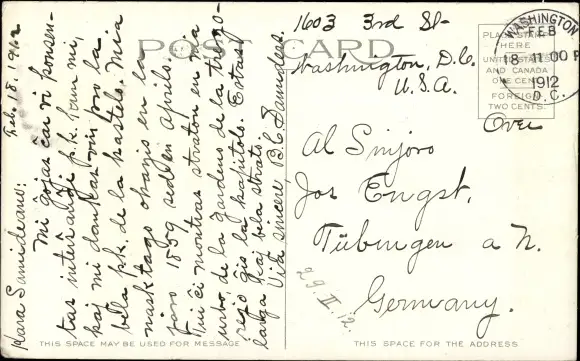 POST CARD
Feb, 18, 1912
Kara Samideano:
Mi ĝojas ĉar vi konsen-
tas interŝanĝi p.k. kun mi,
kaj mi dankas vin pro la
bela pk. de la kastelo. Mia
naskitago okazis en la
jaro 1859 sed en aprilo.
Tiu ĉi montras straton en mia
urbo de la ĝardeno de la
ĝis la kapitolo. Estas
larĝa kaj bela strato.
Via sincere, B.C. Saunders.
THIS SPACE MAY BE USED FOR MESSAGE
1603 3rd St-
Washington, D.C.
U.S.A.
Over
PLACE STAMP
HERE
UNITED STATES
AND CANADA
ONE CENT
FOREIGN
TWO CENTS
WASHINGTON
FEB
18 11 00 P
1912
D.C.
Al Sinjoro
Jos Engst,
Tübingen a N.
Germany.
29. II. 12.
THIS SPACE FOR THE ADDRESS